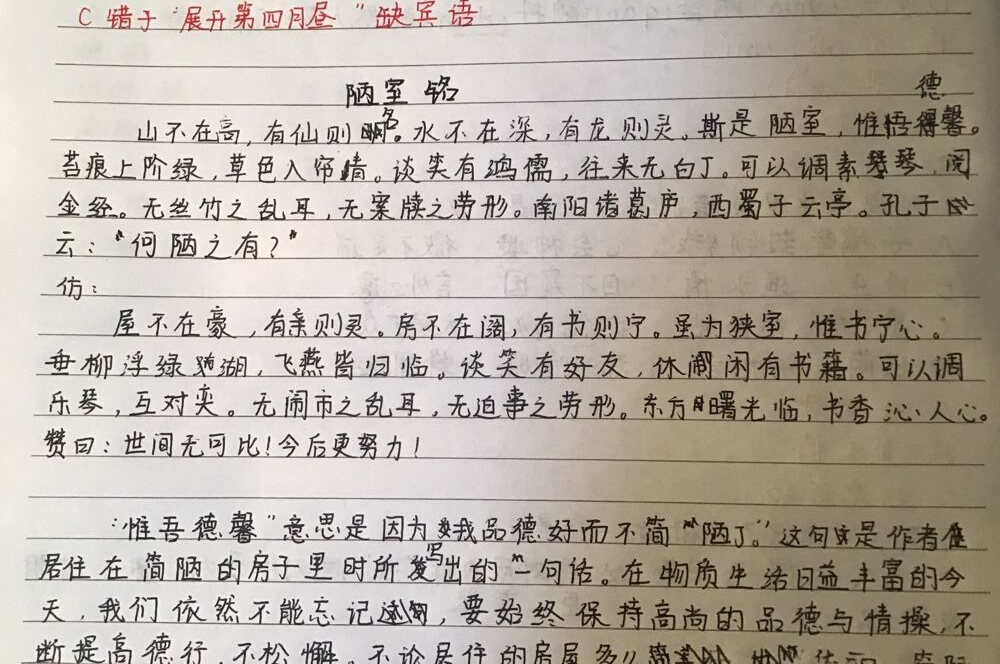 C 错于"展开第四月昼"缺宾语
陋室铭
德
山不在高,有仙则名。水不在深,有龙则灵。斯是陋室,惟吾得馨。
苔痕上阶绿,草色入帘情。谈笑有鸿儒,往来无白丁。可以调素琴,阅
金经。无丝竹之乱耳,无案牍之劳形。南阳诸葛庐,西蜀子云亭。孔子
云:"何陋之有?"
仿:
屋不在豪,有亲则灵。房不在阔,有书则宁。虽为狭室,惟书宁心。
垂柳浮绿湖,飞燕皆归临。谈笑有好友,休闲有书籍。可以调
乐琴,互对奕。无闹市之乱耳,无迫事之劳形。东方曙光临,书香沁人心。
赞曰:世间无可比!今后更努力!
"惟吾德馨"意思是因为我品德好而不简陋了。"这句是作者
居住在简陋的房子里时所写出的一句话。在物质生活日益丰富的今
天,我们依然不能忘记,要始终保持高尚的品德与情操,不
断提高德行,不松懈。不论居住的房屋多么